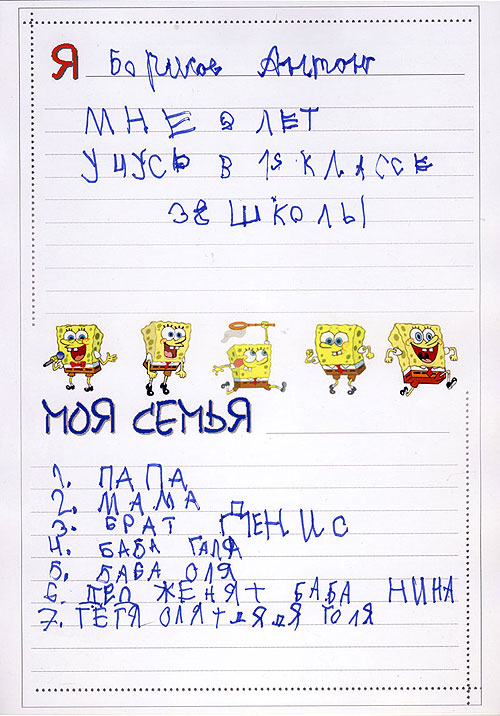 Я Антон
МНЕ ЛЕТ
УЧУСЬ В КЛАССЕ
38 ШКОЛЫ
МОЯ СЕМЬЯ
1. ПАПА
2. МАМА
3. БРАТ ДЕНИС
4. БАБА ГАЛЯ
5. БАБА ОЛЯ
6. ДЕД ЖЕНЯ+ БАБА НИНА
7. ТЁТЯ ОЛЯ+дядя ТОЛЯ